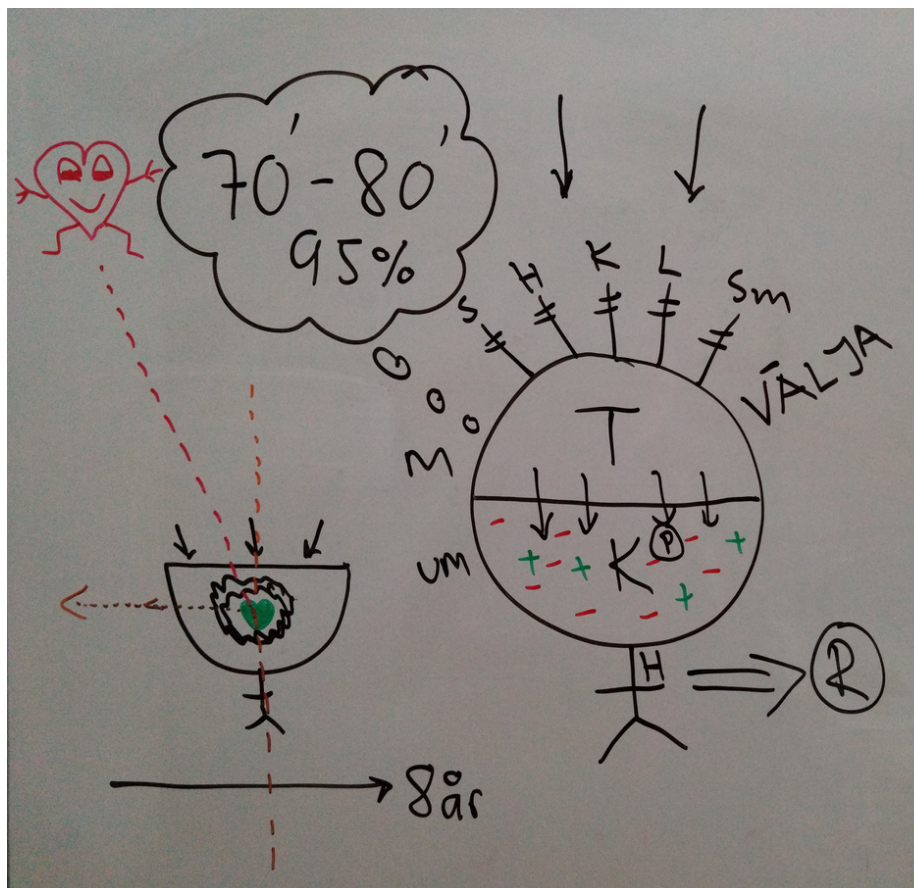 70' - 80'
95%
S H K L Sm
VÄLJA
T
M
- - + - + K P - - + - - - - +
UM
H
R
8 år